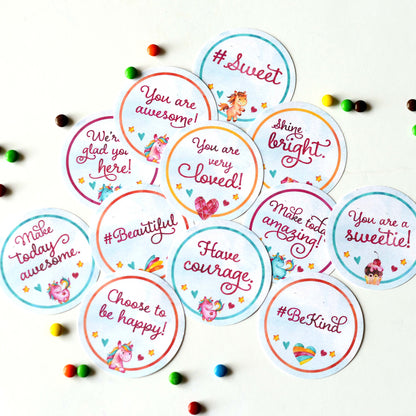 #Sweet
You are
awesome!
Shine
bright.
We're
glad you
here!
You are
very
loved!
Make today
amazing!
You are a
sweetie!
#Beautiful
Make
today
awesome.
Have
courage.
Choose to
be happy!
#BeKind